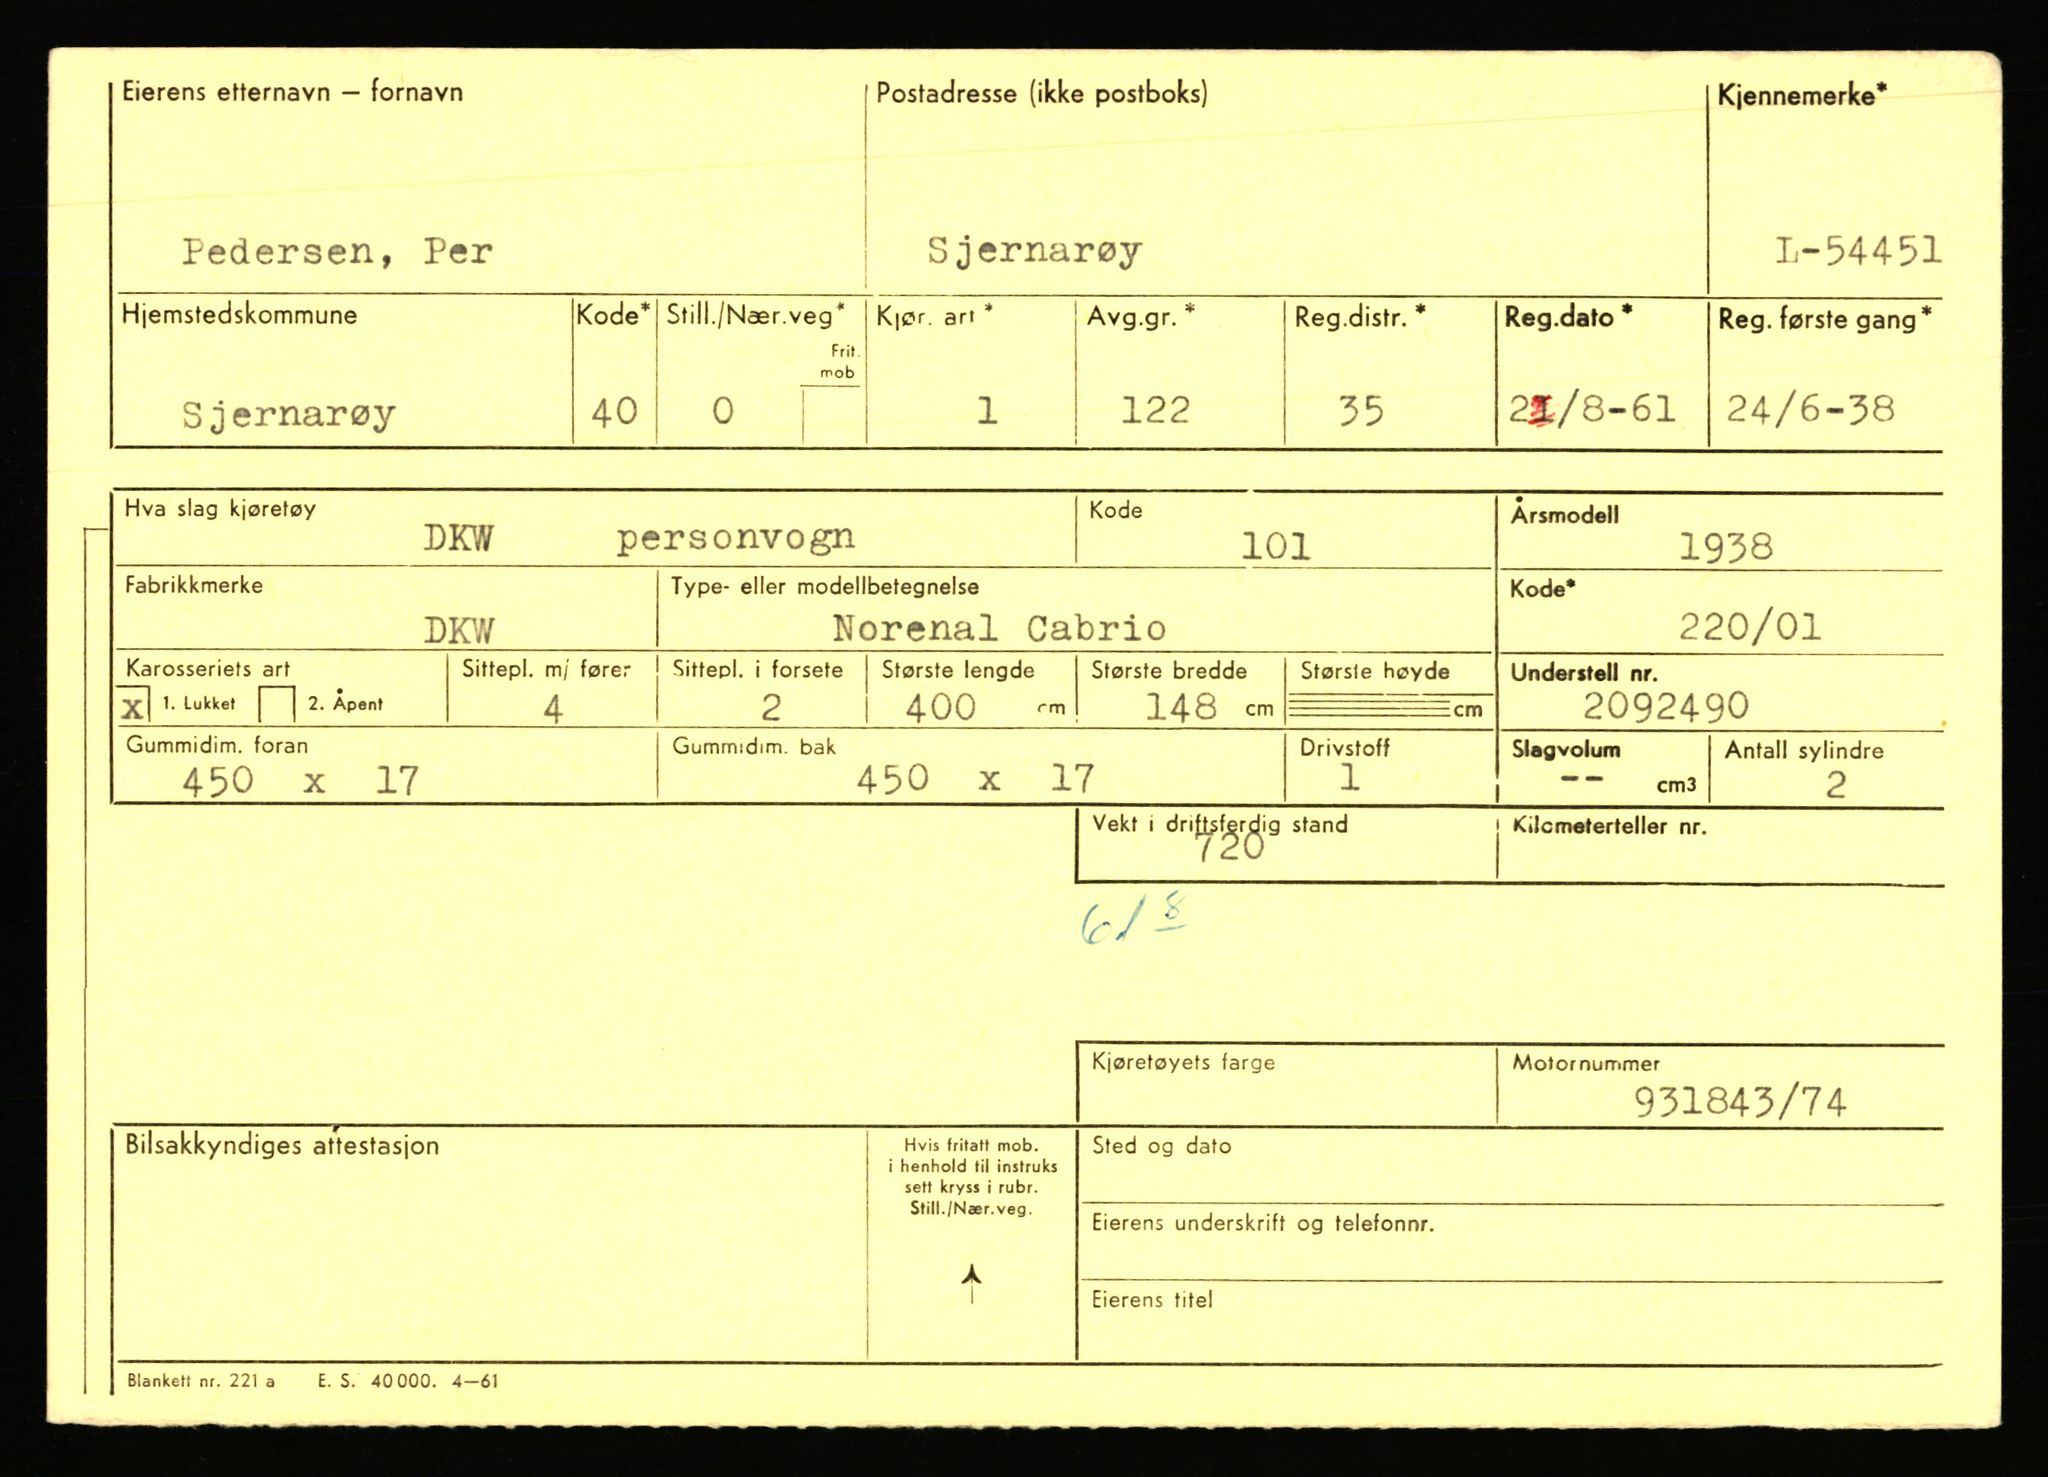 Eierens etternavn – fornavn
Postadresse (ikke postboks)
Kjennemerke*
Pedersen, Per
Sjernarøy
L-54451
Hjemstedskommune
Kode*
Still./Nær.veg*
Frit.
mob
Kjør. art*
Avg.gr.*
Reg.distr.*
Reg.dato*
Reg. første gang*
Sjernarøy
40
0
1
122
35
21/8-61
24/6-38
Hva slag kjøretøy
DKW personvogn
Kode
101
Årsmodell
1938
Fabrikkmerke
DKW
Type- eller modellbetegnelse
Norenal Cabrio
Kode*
220/01
Karosseriets art
x 1. Lukket 2. Åpent
Sittepl. m/ fører
4
Sittepl. i forsete
2
Største lengde
400 cm
Største bredde
148 cm
Største høyde
cm
Understell nr.
2092490
Gummidim. foran
450 x 17
Gummidim. bak
450 x 17
Drivstoff
1
Slagvolum
-- cm3
Antall sylindre
2
Vekt i driftsferdig stand
720
Kilometerteller nr.
61 8
Kjøretøyets farge
Motornummer
931843/74
Bilsakkyndiges attestasjon
Hvis fritatt mob.
i henhold til instruks
sett kryss i rubr.
Still./Nær.veg.
Sted og dato
Eierens underskrift og telefonnr.
Eierens titel
Blankett nr. 221 a E. S. 40 000. 4–61